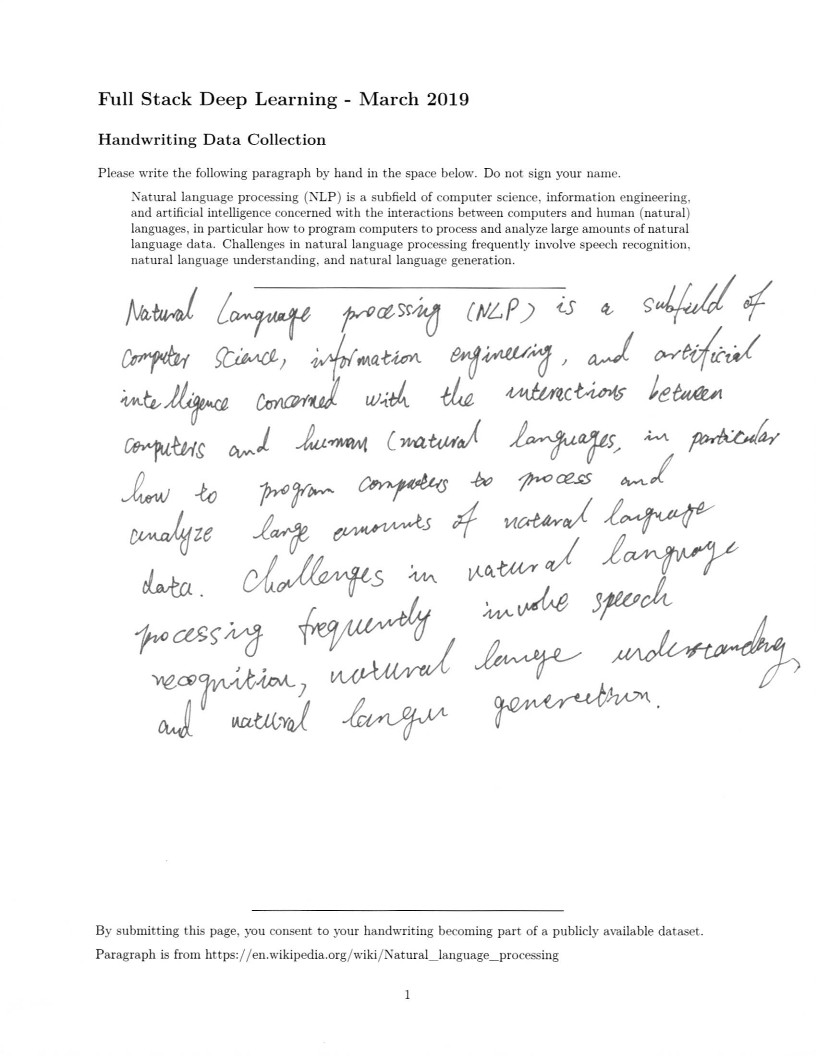 Full Stack Deep Learning - March 2019
Handwriting Data Collection
Please write the following paragraph by hand in the space below. Do not sign your name.
Natural language processing (NLP) is a subfield of computer science, information engineering,
and artificial intelligence concerned with the interactions between computers and human (natural)
languages, in particular how to program computers to process and analyze large amounts of natural
language data. Challenges in natural language processing frequently involve speech recognition,
natural language understanding, and natural language generation.
Natural Language processing (NLP) is a subfield of
Computer Science, information engineering, and artificial
intelligence concerned with the interactions between
computers and human (natural languages, in particular
how to program computers to process and
analyze large amounts of natural language
data. Challenges in natural language
processing frequently involve speech
recognition, natural lange understanding,
and natural generation.
By submitting this page, you consent to your handwriting becoming part of a publicly available dataset.
Paragraph is from https://en.wikipedia.org/wiki/Natural_language_processing
1